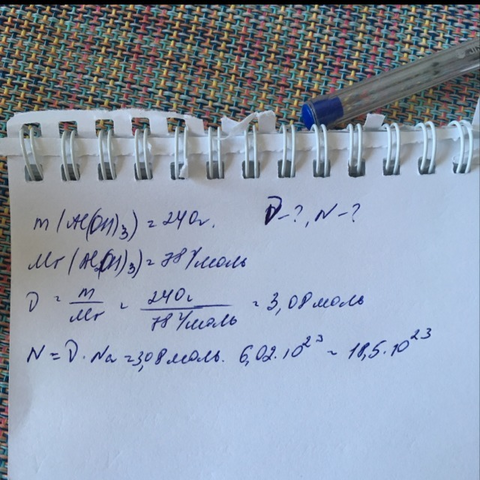 m(Al(OH)3) = 240г. ν-?, N-?
Mr(Al(OH)3) = 78 г/моль
ν = m/Mr = 240г/78 г/моль = 3,08 моль
N = ν · Na = 3,08 моль · 6,02 · 10^23 = 18,5 · 10^23